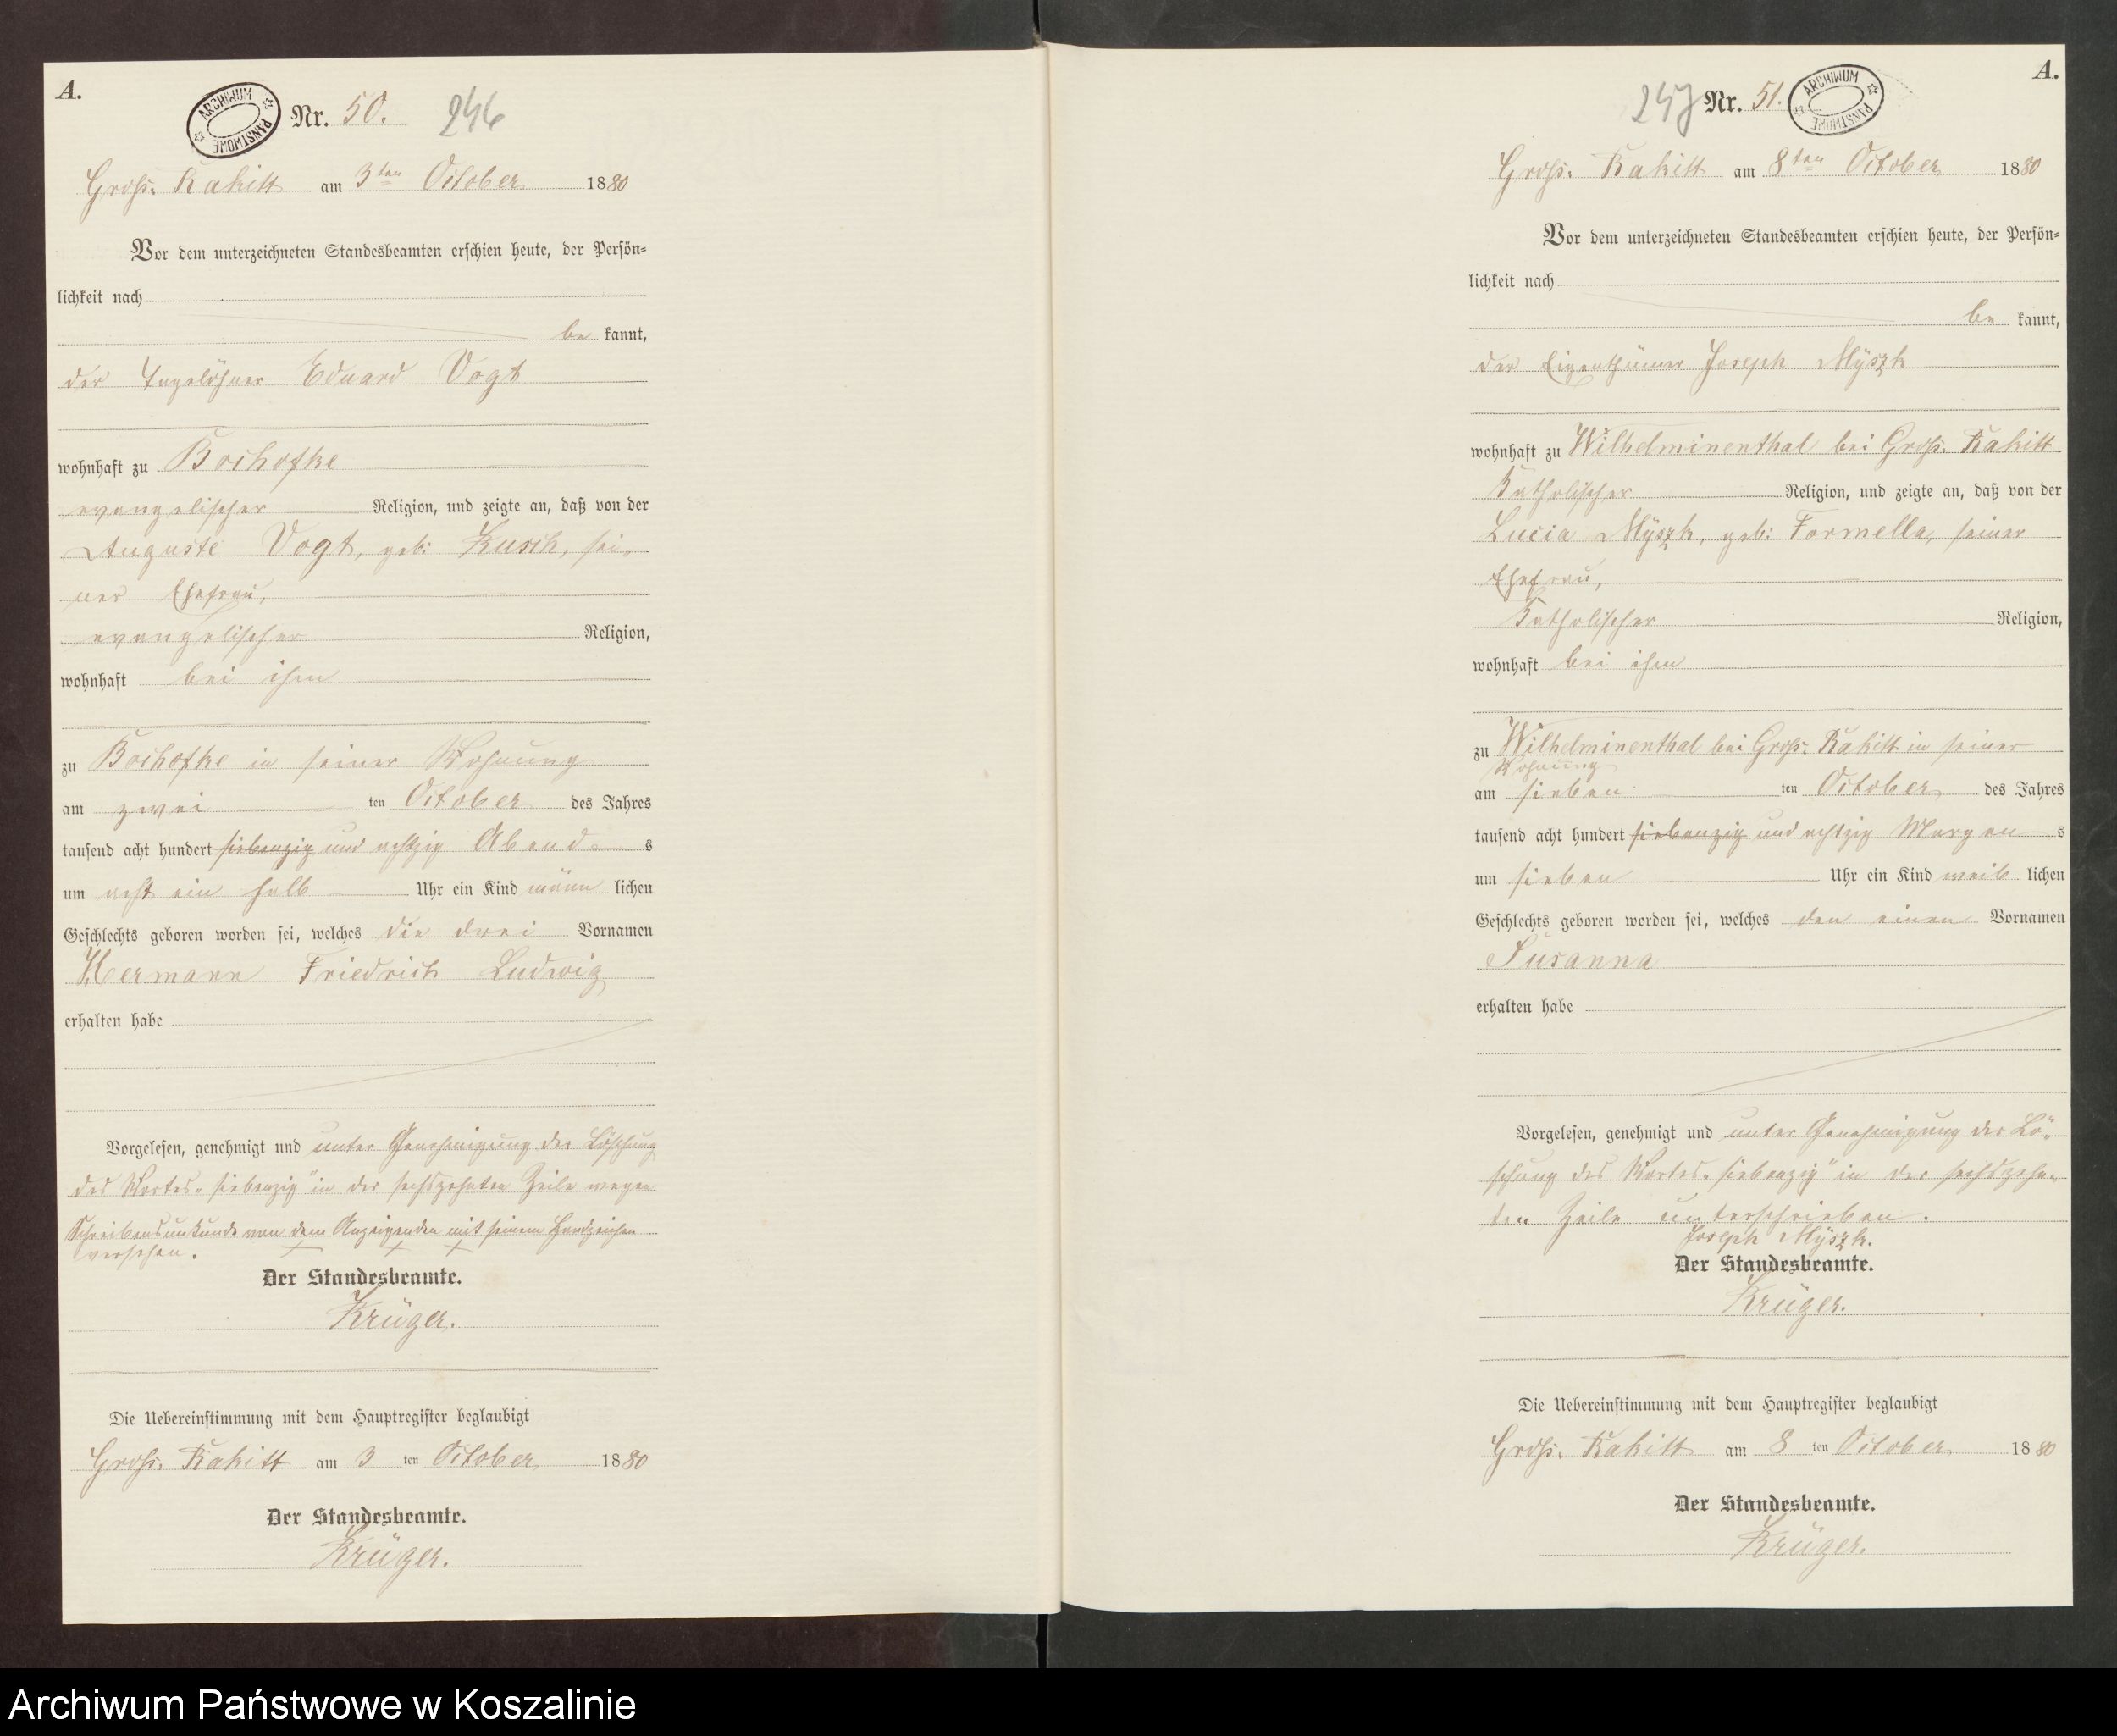 A.
ARCHIWUM PAŃSTWOWE
Nr. 50.
246
Groß. Rakitt am 3ten October 1880
Vor dem unterzeichneten Standesbeamten erschien heute, der Persön=
lichkeit nach
be kannt,
der Tagelöhner Eduard Vogt
wohnhaft zu Bochofke
evangelischer Religion, und zeigte an, daß von der
Auguste Vogt, geb: Kusch, sei-
ner Ehefrau,
evangelischer Religion,
wohnhaft bei ihm
zu Bochofke in seiner Wohnung
am zwei ten October des Jahres
tausend acht hundert siebenzig und achtzig Abend s
um acht ein halb Uhr ein Kind männ lichen
Geschlechts geboren worden sei, welches die drei Vornamen
Hermann Friedrich Ludwig
erhalten habe
Vorgelesen, genehmigt und unter Genehmigung der Löschung
des Wortes „siebenzig" in der sechszehnten Zeile wegen
Schreibensunkunde von dem Anzeigenden mit seinem Handzeichen
versehen. + + +
Der Standesbeamte.
Krüger.
Die Uebereinstimmung mit dem Hauptregister beglaubigt
Groß. Rakitt am 3 ten October 1880
Der Standesbeamte.
Krüger.
A.
247
Nr. 51.
ARCHIWUM PAŃSTWOWE
Groß. Rakitt am 8ten October 1880
Vor dem unterzeichneten Standesbeamten erschien heute, der Persön=
lichkeit nach
be kannt,
der Eigenthümer Joseph Myszk
wohnhaft zu Wilhelminenthal bei Groß. Rakitt
Katholischer Religion, und zeigte an, daß von der
Lucia Myszk, geb: Formella, seiner
Ehefrau,
Katholischer Religion,
wohnhaft bei ihm
zu Wilhelminenthal bei Groß. Rakitt in seiner
Wohnung
am sieben ten October des Jahres
tausend acht hundert siebenzig und achtzig Morgen s
um sieben Uhr ein Kind weib lichen
Geschlechts geboren worden sei, welches den einen Vornamen
Susanna
erhalten habe
Vorgelesen, genehmigt und unter Genehmigung der Lö-
schung des Wortes „siebenzig" in der sechszehn-
ten Zeile unterschrieben.
Joseph Myszk.
Der Standesbeamte.
Krüger.
Die Uebereinstimmung mit dem Hauptregister beglaubigt
Groß. Rakitt am 8 ten October 1880
Der Standesbeamte.
Krüger.
Archiwum Państwowe w Koszalinie